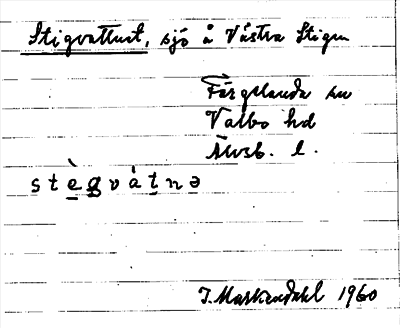 Stigvattnet, sjö å Västra Stigen
Färgelanda sn
Valbo hd
Älvsb. l.
s t è g v á t n ə
J. Markendahl 1960